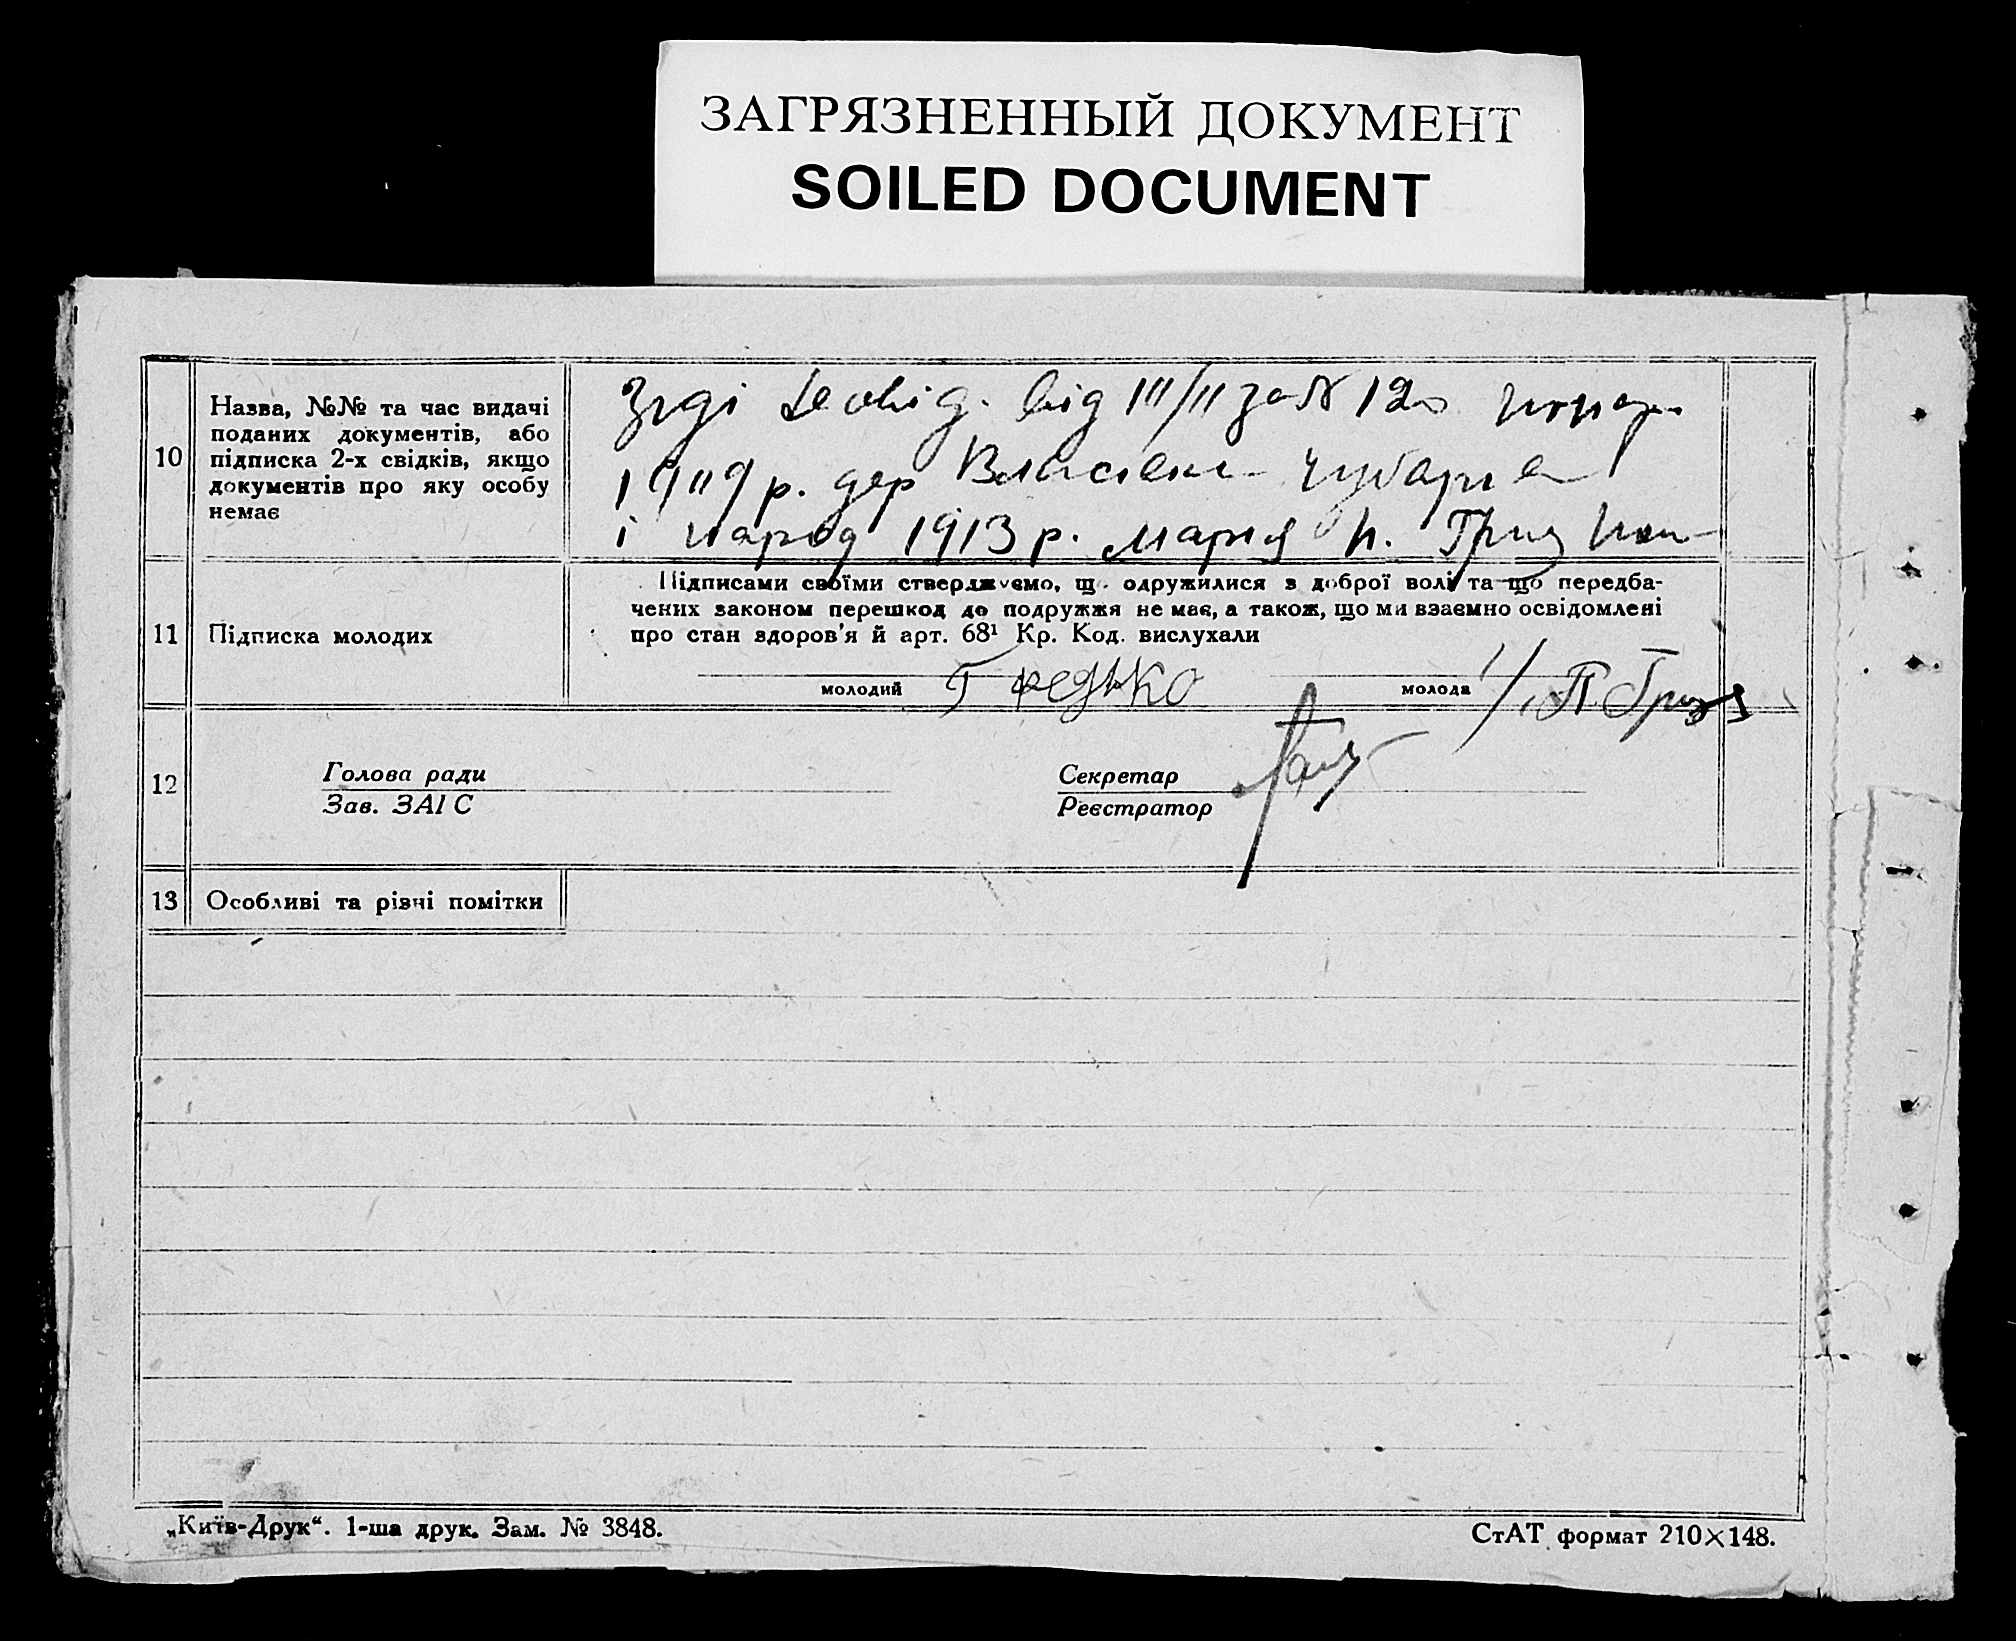 ЗАГРЯЗНЕННЫЙ ДОКУМЕНТ
SOILED DOCUMENT
10
Назва, №№ та час видачі
поданих документів, або
підписка 2-х свідків, якщо
документів про яку особу
немає
Згді від III/II за № 120
1909 р. дер
і народ 1913 р. Мария П.
11
Підписка молодих
Підписами своїми стверджуємо, що одружилися з доброї волі та що передба-
чених законом перешкод до подружжя не має, а також, що ми взаємно освідомлені
про стан здоров'я й арт. 68¹ Кр. Код. вислухали
молодий Г Редько молода П. Гриз
12
Голова ради
Зав. ЗАІС
Секретар
Реєстратор
13
Особливі та різні помітки
„Київ-Друк“. 1-ша друк. Зам. № 3848.
СтАТ формат 210×148.